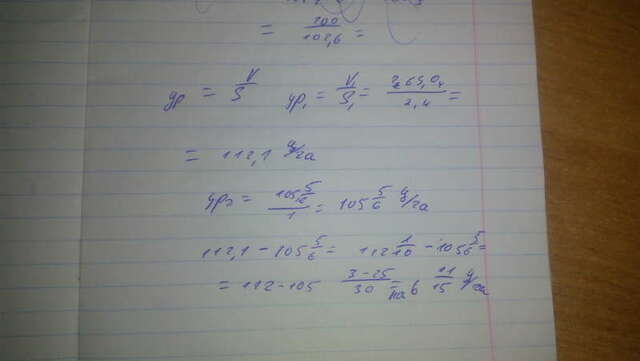 = 200/102,6 =
ур = V/S ур₁ = V₁/S₁ = 265,04/2,4 =
= 112,1 ц/га
ур₂ = 105 5/6 / 1 = 105 5/6 ц/га
112,1 - 105 5/6 = 112 1/10 - 105 5/6 =
= 112-105 3-25/30 = на 6 11/15 ц/га